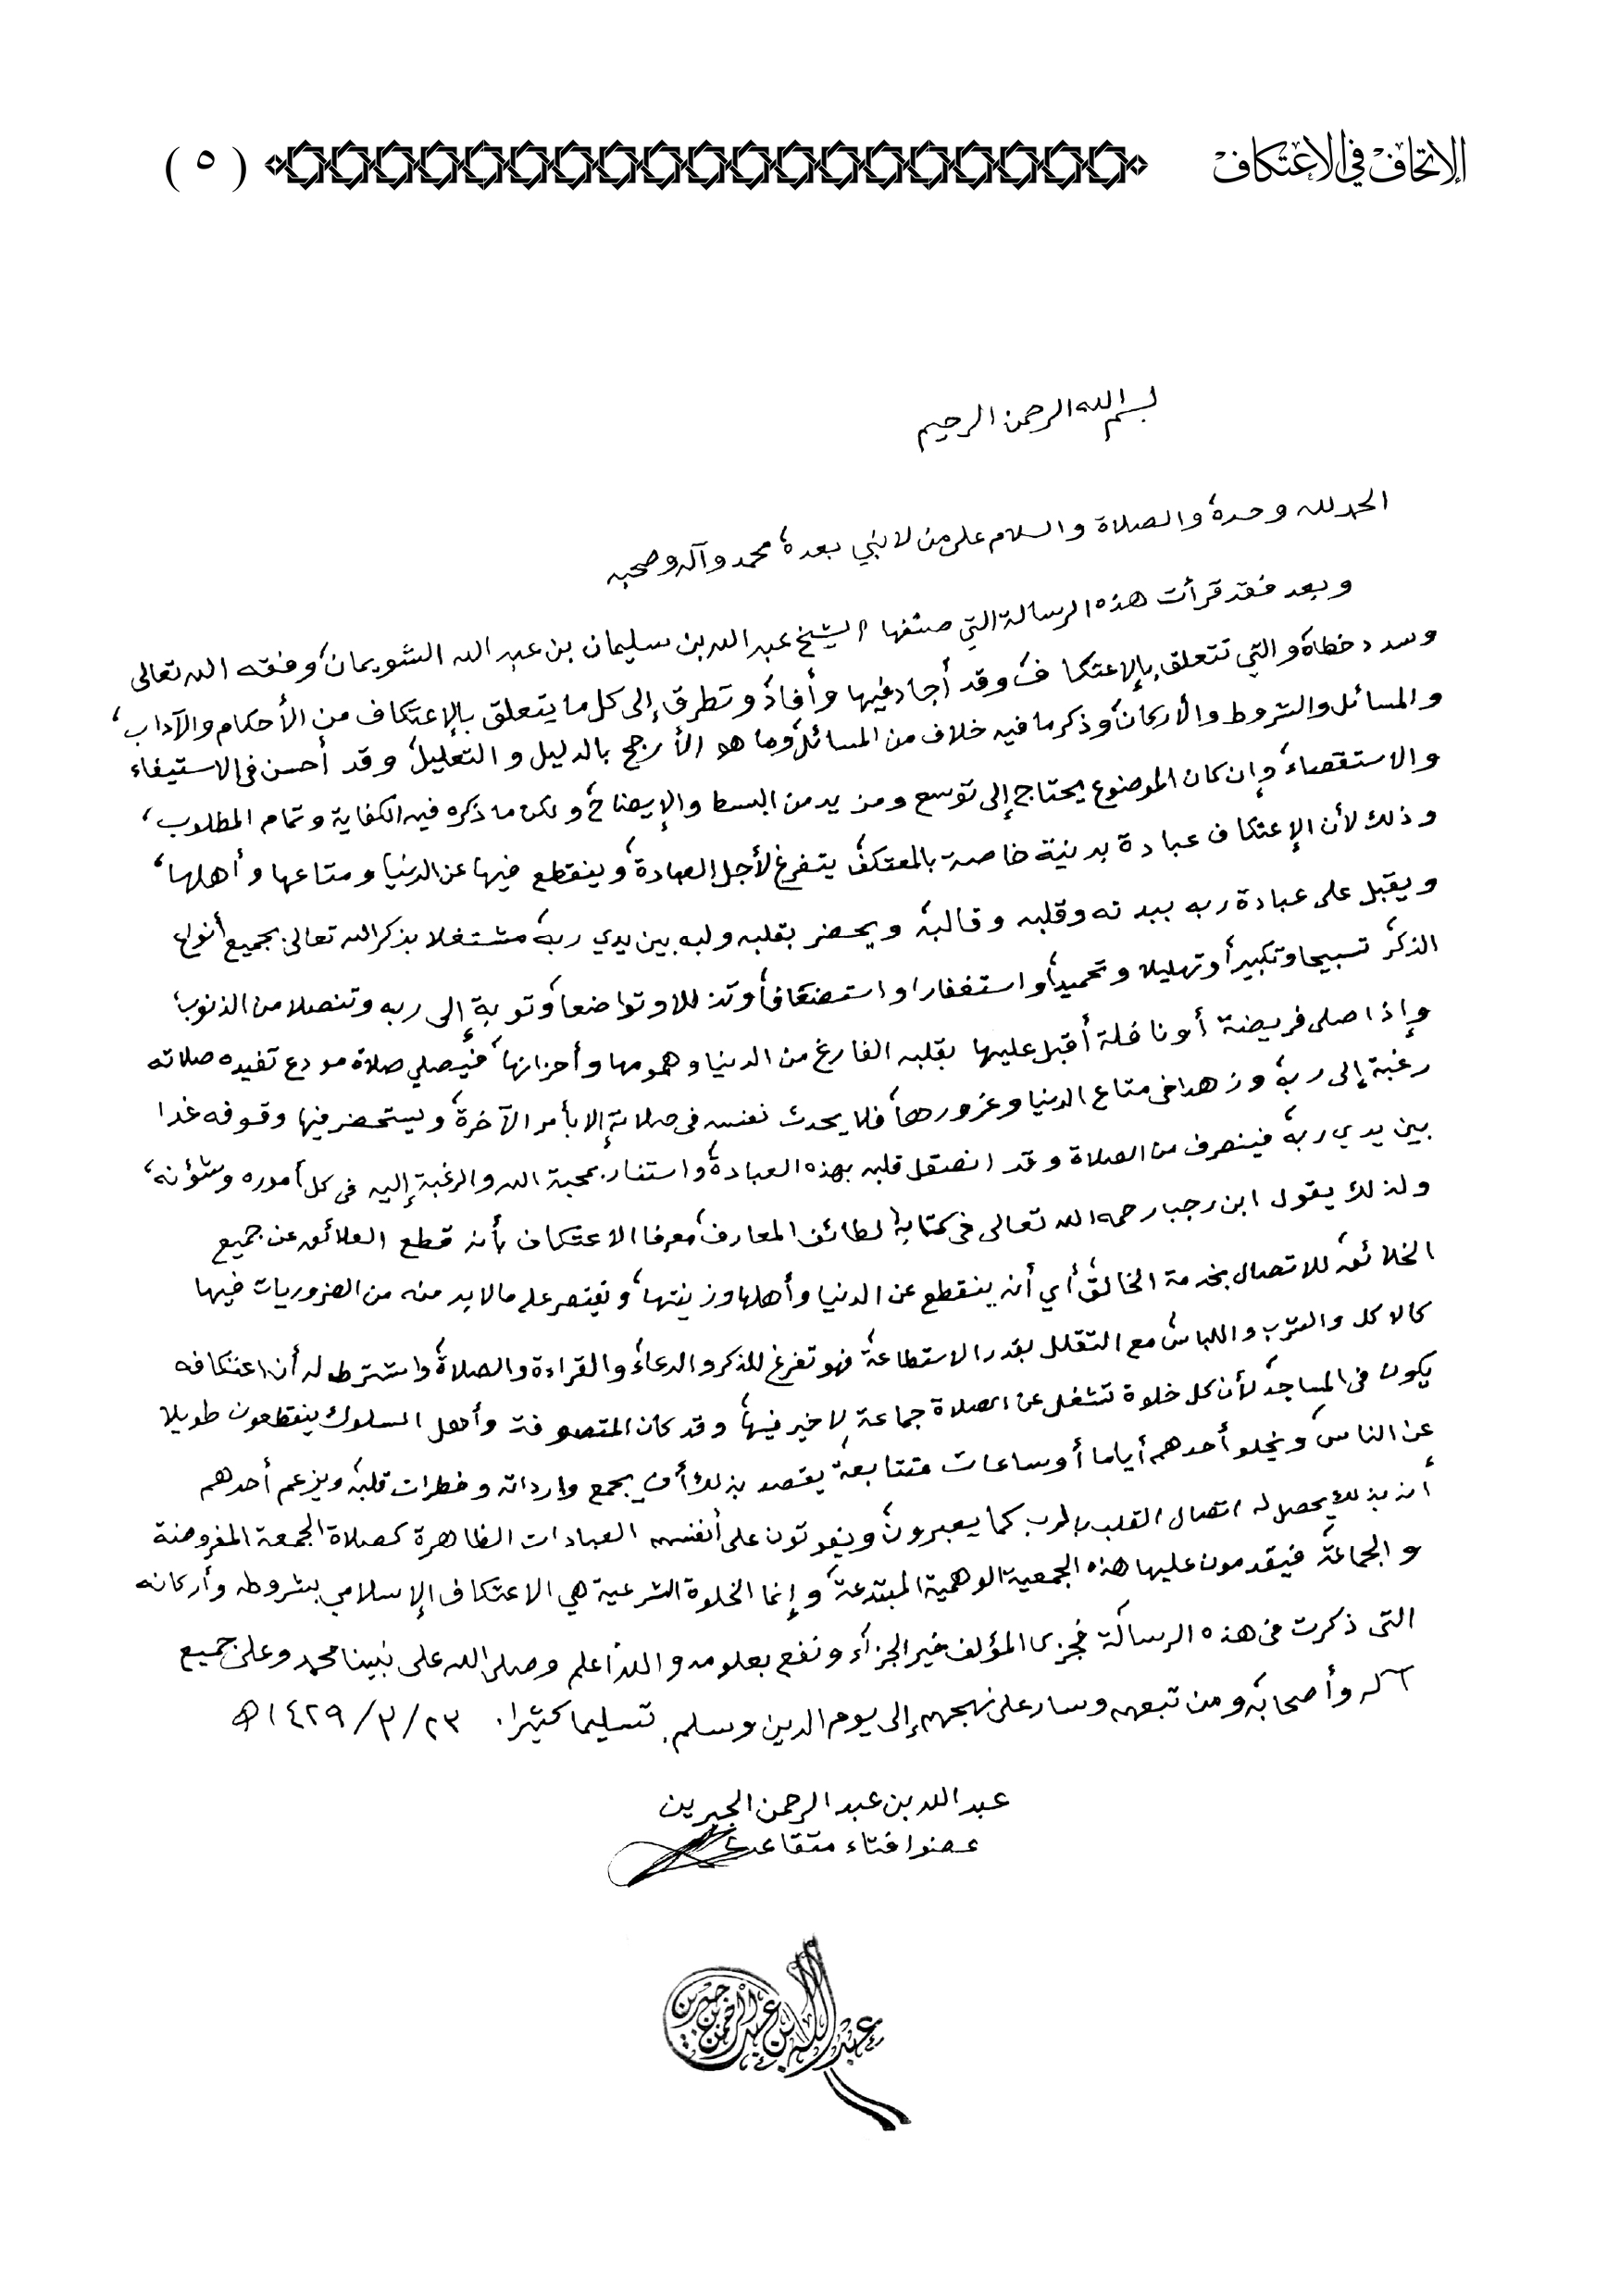 الإتحاف في الاعتكاف ( ٥ )
بسم الله الرحمن الرحيم
الحمد لله وحده، والصلاة والسلام على من لا نبي بعده، محمد وآله وصحبه
وبعد فقد قرأت هذه الرسالة التي صنفها الشيخ عبد الله بن سليمان بن عبد الله الشويمان، وفقه الله تعالى
وسدد خطاه، والتي تتعلق بالإعتكاف، وقد أجاد فيها وأفاد، وتطرق إلى كل ما يتعلق بالإعتكاف من الأحكام والآداب،
والمسائل والشروط والأركان، وذكر ما فيه خلاف من المسائل، وما هو الأرجح بالدليل والتعليل، وقد أحسن في الاستيفاء
والاستقصاء، وإن كان الموضوع يحتاج إلى توسع ومزيد من البسط والإيضاح، ولكن ما ذكره فيه الكفاية وتمام المطلوب،
وذلك لأن الإعتكاف عبادة بدنية خاصة بالمعتكف، يتفرغ لأجل العبادة، وينقطع فيها عن الدنيا ومتاعها وأهلها،
ويقبل على عبادة ربه ببدنه وقلبه وقالبه، ويحضر بقلبه ولبه بين يدي ربه، مشتغلا بذكر الله تعالى بجميع أنواع
الذكر، تسبيحا وتكبيرا وتهليلا وتحميدا، واستغفارا واستضعافا، وتذللا وتواضعا، وتوبة إلى ربه وتنصلا من الذنوب،
وإذا صلى فريضة أو نافلة أقبل عليها بقلبه الفارغ من الدنيا وهمومها وأحزانها، فيصلي صلاة مودع تفيده صلاته
رغبة إلى ربه، وزهدا في متاع الدنيا وغرورها، فلا يحدث نفسه في صلاته إلا بأمر الآخرة، ويستحضر فيها وقوفه غدا
بين يدي ربه، فينصرف من الصلاة وقد انصقل قلبه بهذه العبادة، واستنار بمحبة الله والرغبة إليه في كل أموره وشؤنه،
ولذلك يقول ابن رجب رحمه الله تعالى في كتابه لطائف المعارف، معرفا الاعتكاف بأنه قطع العلائق عن جميع
الخلائق، للاتصال بخدمة الخالق، أي أنه ينقطع عن الدنيا وأهلها وزينتها، ويقتصر على ما لابد منه من الضروريات فيها
كالاكل والشرب واللباس، مع التقلل بقدر الاستطاعة، فهو تفرغ للذكر والدعاء، والقراءة والصلاة، واشترط له أن اعتكافه
يكون في المساجد، لأن كل خلوة تشغل عن الصلاة جماعة لا خير فيها، وقد كان المتصوفة وأهل السلوك ينقطعون طويلا
عن الناس، ويخلو أحدهم أياما أو ساعات متتابعة، يقصد بذلك أن يجمع وارداته وخطرات قلبه، ويزعم أحدهم
أنه بذلك يحصل له اتصال القلب بالرب كما يعبرون، ويفوتون على أنفسهم العبادات الظاهرة كصلاة الجمعة المفروضة
والجماعة، فيقدمون عليها هذه الجمعية الوهمية المبتدعة، وإنما الخلوة الشرعية هي الاعتكاف الإسلامي بشروطه وأركانه
التى ذكرت في هذه الرسالة، فجزى المؤلف خير الجزاء، ونفع بعلومه والله أعلم وصلى الله على نبينا محمد وعلى جميع
آله وأصحابه، ومن تبعهم وسار على نهجهم إلى يوم الدين وسلم تسليما كثيرا. ٢٣/٣/١٤٢٩هـ
عبد الله بن عبد الرحمن الجبرين
عضو افتاء متقاعد
عبد الله بن عبد الرحمن بن جبرين